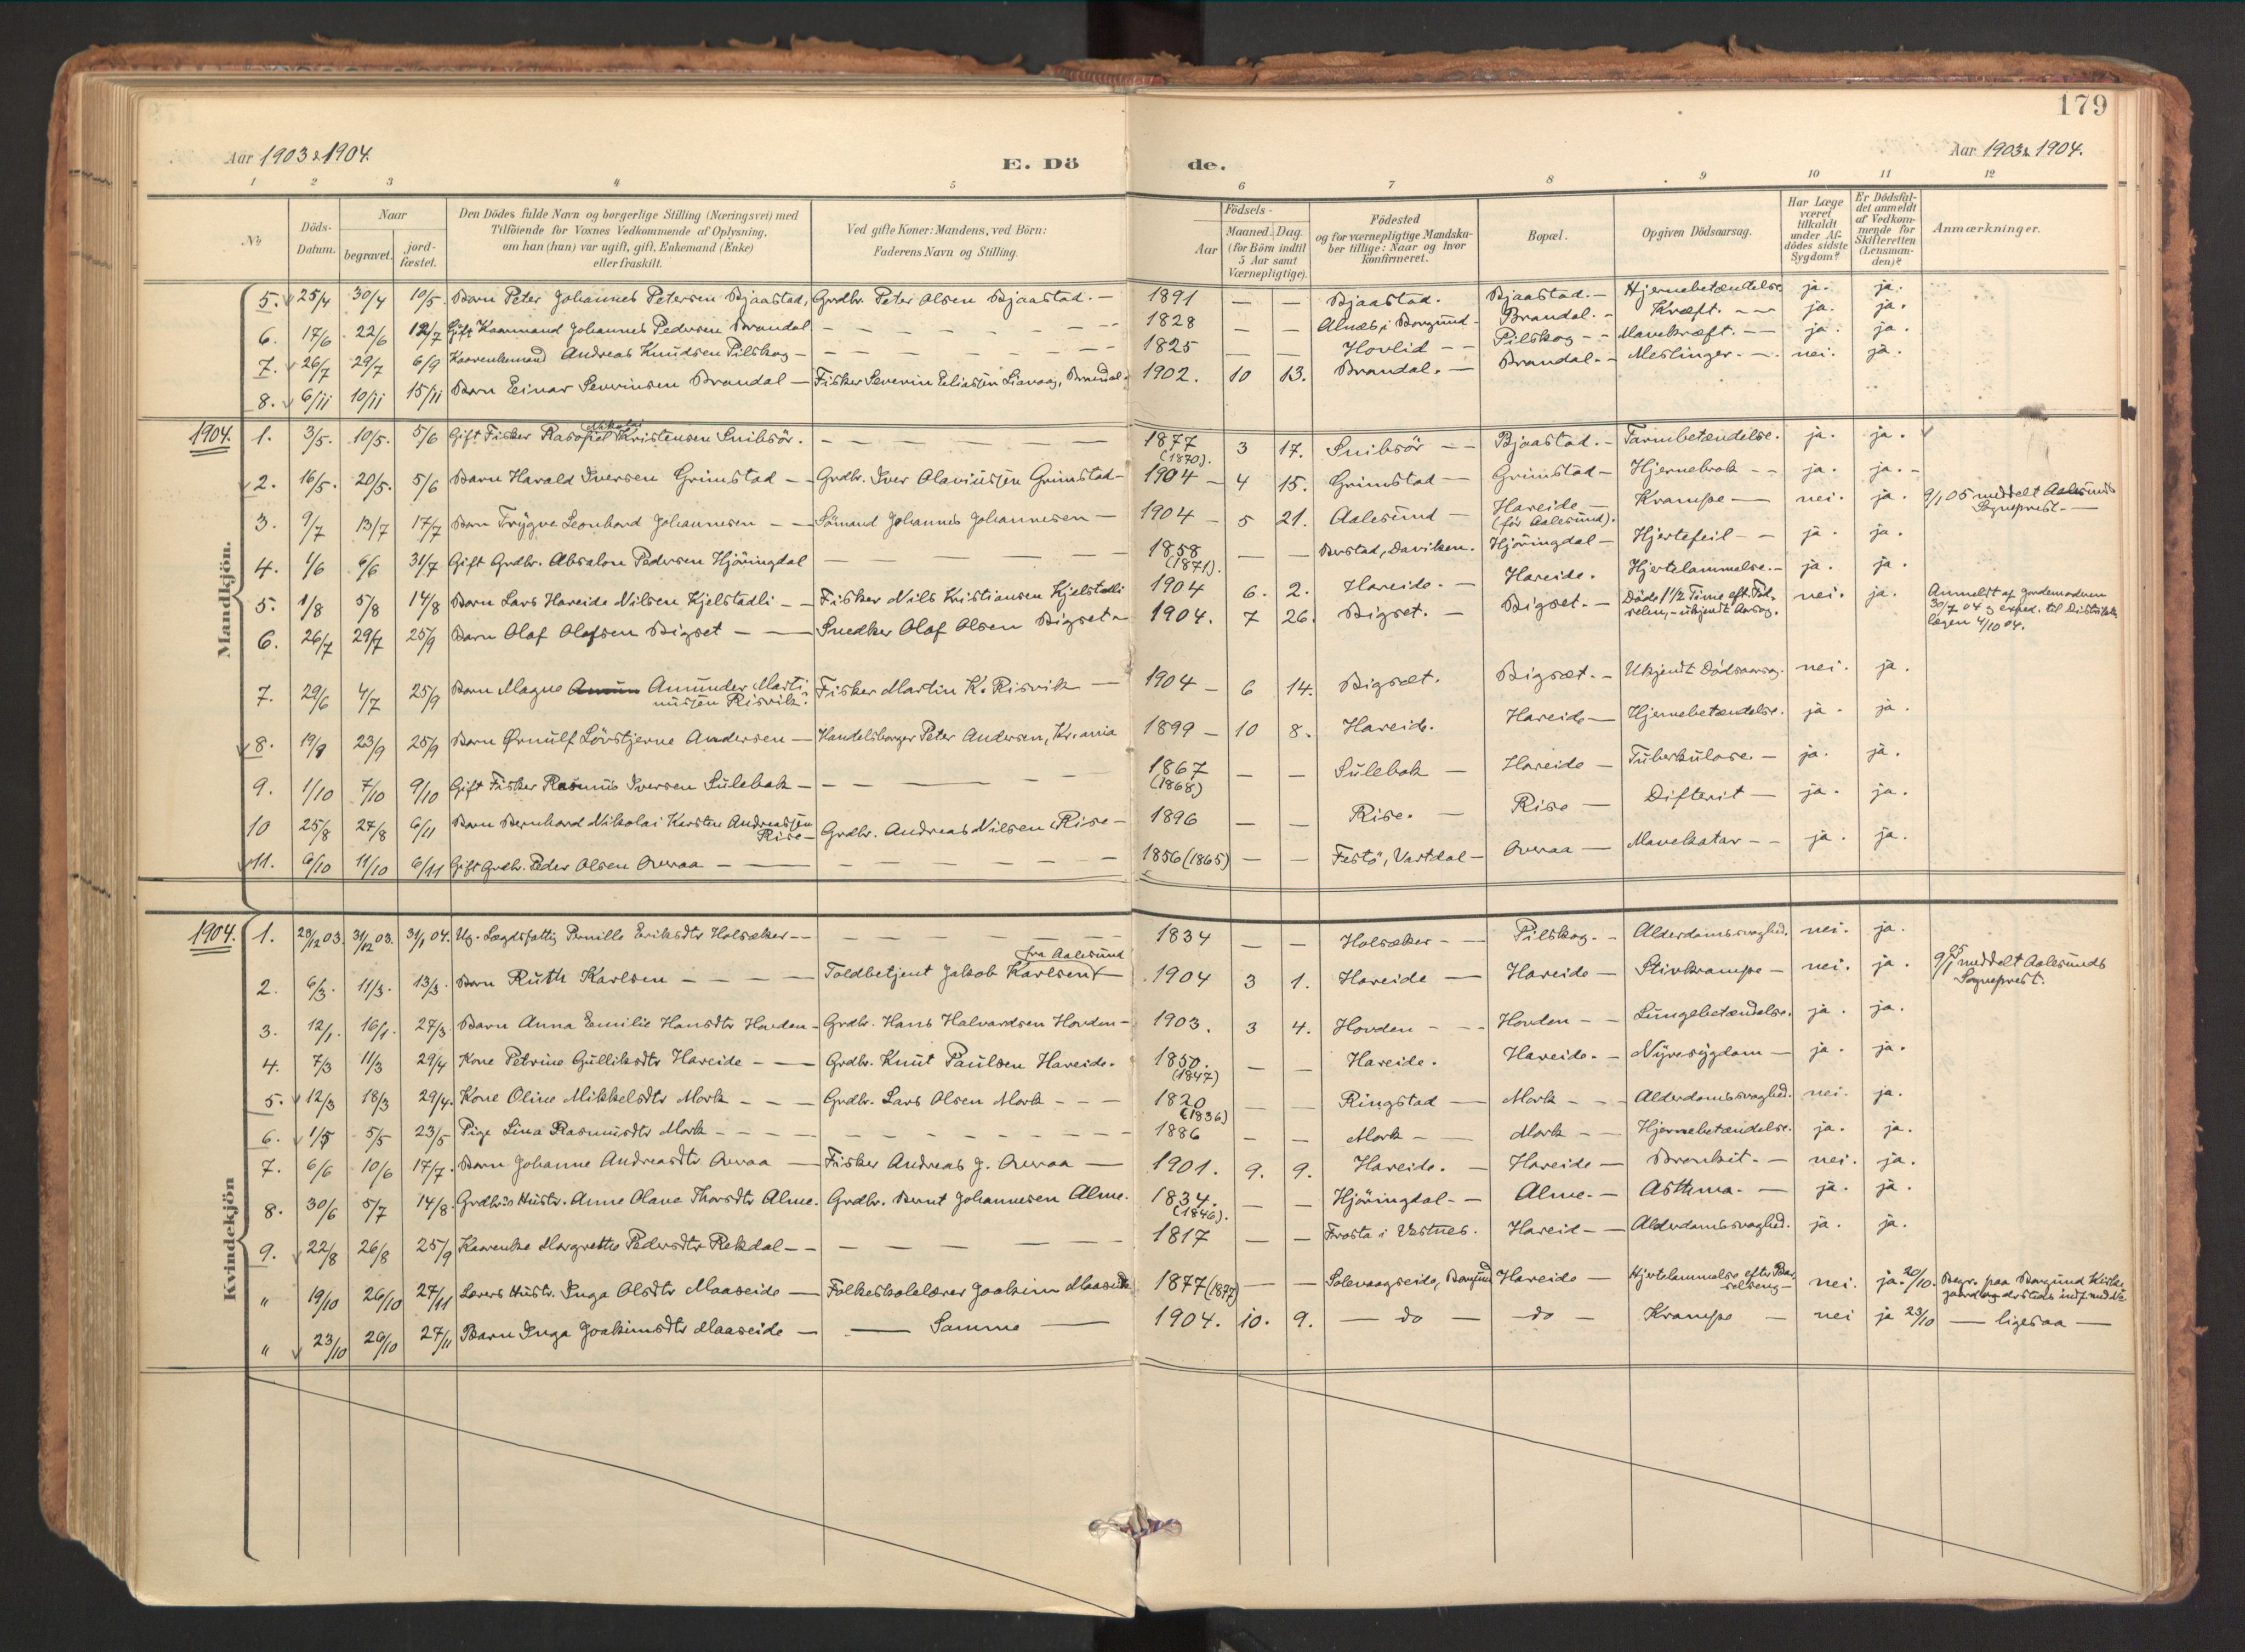 179
Aar 1903 & 1904.
E. Dö
de.
Aar 1903 & 1904.
1 2 3 4 5 6 7 8 9 10 11 12
No
Döds-Datum.
Naar
begravet.
jord-fæstet.
Den Dödes fulde Navn og borgerlige Stilling (Næringsvei) med
Tilföiende for Voxnes Vedkommende af Oplysning,
om han (hun) var ugift, gift, Enkemand (Enke)
eller fraskilt.
Ved gifte Koner: Mandens, ved Börn:
Faderens Navn og Stilling.
Födsels-
Aar
Maaned. Dag.
(for Börn indtil
5 Aar samt
Værnepligtige).
Födested
og for værnepligtige Mandska-
ber tillige: Naar og hvor
konfirmeret.
Bopæl.
Opgiven Dödsaarsag.
Har Læge
været
tilkaldt
under Af-
dödes sidste
Sygdom?
Er Dödsfal-
det anmeldt
af Vedkom-
mende for
Skifteretten
(Lensman-
den)?
Anmærkninger.
Mandkjön.
5. 25/4 30/4 10/5. Barn Peter Johannes Petersen Bjaastad, Grdbr. Peter Olsen Bjaastad. — 1891 — — Bjaastad. Bjaastad. — Hjernebetændelse. ja. ja.
6. 17/6 22/6 12/7 Gift Kaarmand Johannes Pedersen Brandal — 1828 — — Alnæs i Borgund — Brandal. — Kræft. — ja. ja.
7. 26/7 29/7 6/9 Kaarenkemand Andreas Knudsen Pilskog — 1825 — — Hovlid — Pilskog — Mavekræft. — ja. ja.
8. 6/11 10/11 15/11 Barn Einar Severinsen Brandal — Fisker Severin Eliassen Liavaag, Brandal. 1902. 10 13. Brandal. — Brandal. — Meslinger. — nei. ja.
1904. 1. 3/5. 10/5. 5/6 Gift Fisker Rasmus Nikolai Kristensen Snibsör. — 1877 (1870). 3 17. Snibsör — Bjaastad. — Tarmbetændelse. ja. ja.
2. 16/5. 20/5. 5/6 Barn Harald Iversen Grimstad — Grdbr. Iver Olaviussen Grimstad — 1904 — 4 15. Grimstad — Grimstad — Hjernebrok — ja. ja. —
3. 9/7 13/7 17/7 Barn Trygve Leonhard Johannesen — Sömand Johannes Johannesen — 1904 — 5 21. Aalesund — Hareide — (för Aalesund). Krampe — nei. ja. 9/1 05 meddelt Aalesunds Sogneprest. —
4. 1/6 6/6 31/7 Gift Grdbr. Absalon Pedersen Hjöringdal — 1858 (1871). — — Daviken. Hjöringdal — Hjertefeil — ja. ja.
5. 1/8 5/8 14/8 Barn Lars Hareide Nilsen Kjelstadli — Fisker Nils Kristiansen Kjelstadli 1904 6. 2. Hareide. — Hareide. Hjertelammelse. — ja. ja.
6. 26/7 29/7 25/9 Barn Olaf Olafsen Bigset — Snedker Olaf Olsen Bigset — 1904. 7 26. Bigset. — Bigset. — Döde 1 1/2 Time eft. Föd-selen, — ukjendt Aarsag. nei. ja. Anmeldt af Jordemoderen 30/7 04 og exped. til Distrikts-lægen 4/10 04.
7. 29/6 4/7 25/9 Barn Magne Amunder Marti-nussen Risvik. Fisker Martin K. Risvik — 1904 — 6 14. Bigset. Bigset. — Ukjendt Dödsaarsag. nei. ja.
8. 19/8 23/9 25/9 Barn Ørnulf Lövstjerne Andersen — Handelsborger Peter Andersen, Kr.ania 1899 — 10 8. Hareide. Hareide — Hjernebetændelse. ja. ja.
9. 1/10 7/10 9/10 Gift Fisker Rasmus Iversen Sulebak — 1867 (1868) — — Sulebak — Hareide — Tuberkulose. — ja. ja.
10 25/8 27/8 6/11 Barn Bernhard Nikolai Karsten Andreassen Rise — Grdbr. Andreas Nilsen Rise — 1896 — — Rise. — Rise — Difterit — ja. ja.
11. 6/10 11/10 6/11 Gift Grdbr. Peder Olsen Overaa — 1856 (1865) — — Festö, Vartdal — Overaa — Mavekatar — ja. ja.
Kvindekjön
1904. 1. 28/12 03. 31/12 03. 31/1 04. Ug. Lægdsfattig Pernille Eriksdtr Holsæker — 1834 — — Holsæker — Pilskog. — Alderdomssvaghed. nei. ja.
2. 6/3. 11/3. 13/3. Barn Ruth Karlsen — Toldbetjent Jakob Karlsen fra Aalesund 1904 3 1. Hareide — Hareide — Stivkrampe — nei. ja. 9/1 05 meddelt Aalesunds Sogneprest.
3. 12/1. 16/1. 27/3. Barn Anna Emilie Hansdtr Hovden — Grdbr. Hans Halvardsen Hovden — 1903. 3 4. Hovden — Hovden — Lungebetændelse. ja. ja.
4. 7/3 11/3 29/4 Kone Petrine Gulliksdtr Hareide — Grdbr. Knut Paulsen Hareide. 1850. (1847) — — Hareide. Hareide. — Nyresygdom — ja. ja.
5. 12/3 18/3 29/4. Kone Oline Mikkelsdtr Mork — Grdbr. Lars Olsen Mork — 1820 (1836) — — Ringstad — Mork — Alderdomssvaghed. nei. ja.
6. 1/5 5/5 23/5 Pige Lina Rasmusdtr Mork — 1886 — — Mork — Mork — Hjernebetændelse. ja. ja.
7. 6/6 10/6 17/7. Barn Johanne Andreasdtr Overaa — Fisker Andreas J. Overaa — 1901. 9. 9. Hareide. — Hareide — Bronkit. — nei. ja.
8. 30/6 5/7 14/8. Grdbr.s Hustr. Anne Olane Thorsdtr Alme. Grdbr. Bernt Johannesen Alme. 1834. (1846). — — Hjöringdal — Alme. — Asthma. — ja. ja.
9. 22/8 26/8 25/9 Kaarenke Margrethe Pedersdtr Rekdal — 1817 — — Frosta i Vestnes. Hareid — Alderdomssvaghed. ja. ja.
" 19/10 26/10 27/11 Lærers Hustr. Inga Olsdtr Maaseide — Folkeskolelærer Joakim Maaseide 1877 (1877) — — Solevaagseide, Borgund Hareide — Hjertelammelse efter Bar-selseng — nei. ja. 20/10. Begr. paa Borgund Kirke-
" 23/10 29/10 27/11 Barn Inga Joakimsdtr Maaseide — — Samme — 1904. 10. 9. — do — — do — Krampe — nei ja 23/10 — ligesaa —